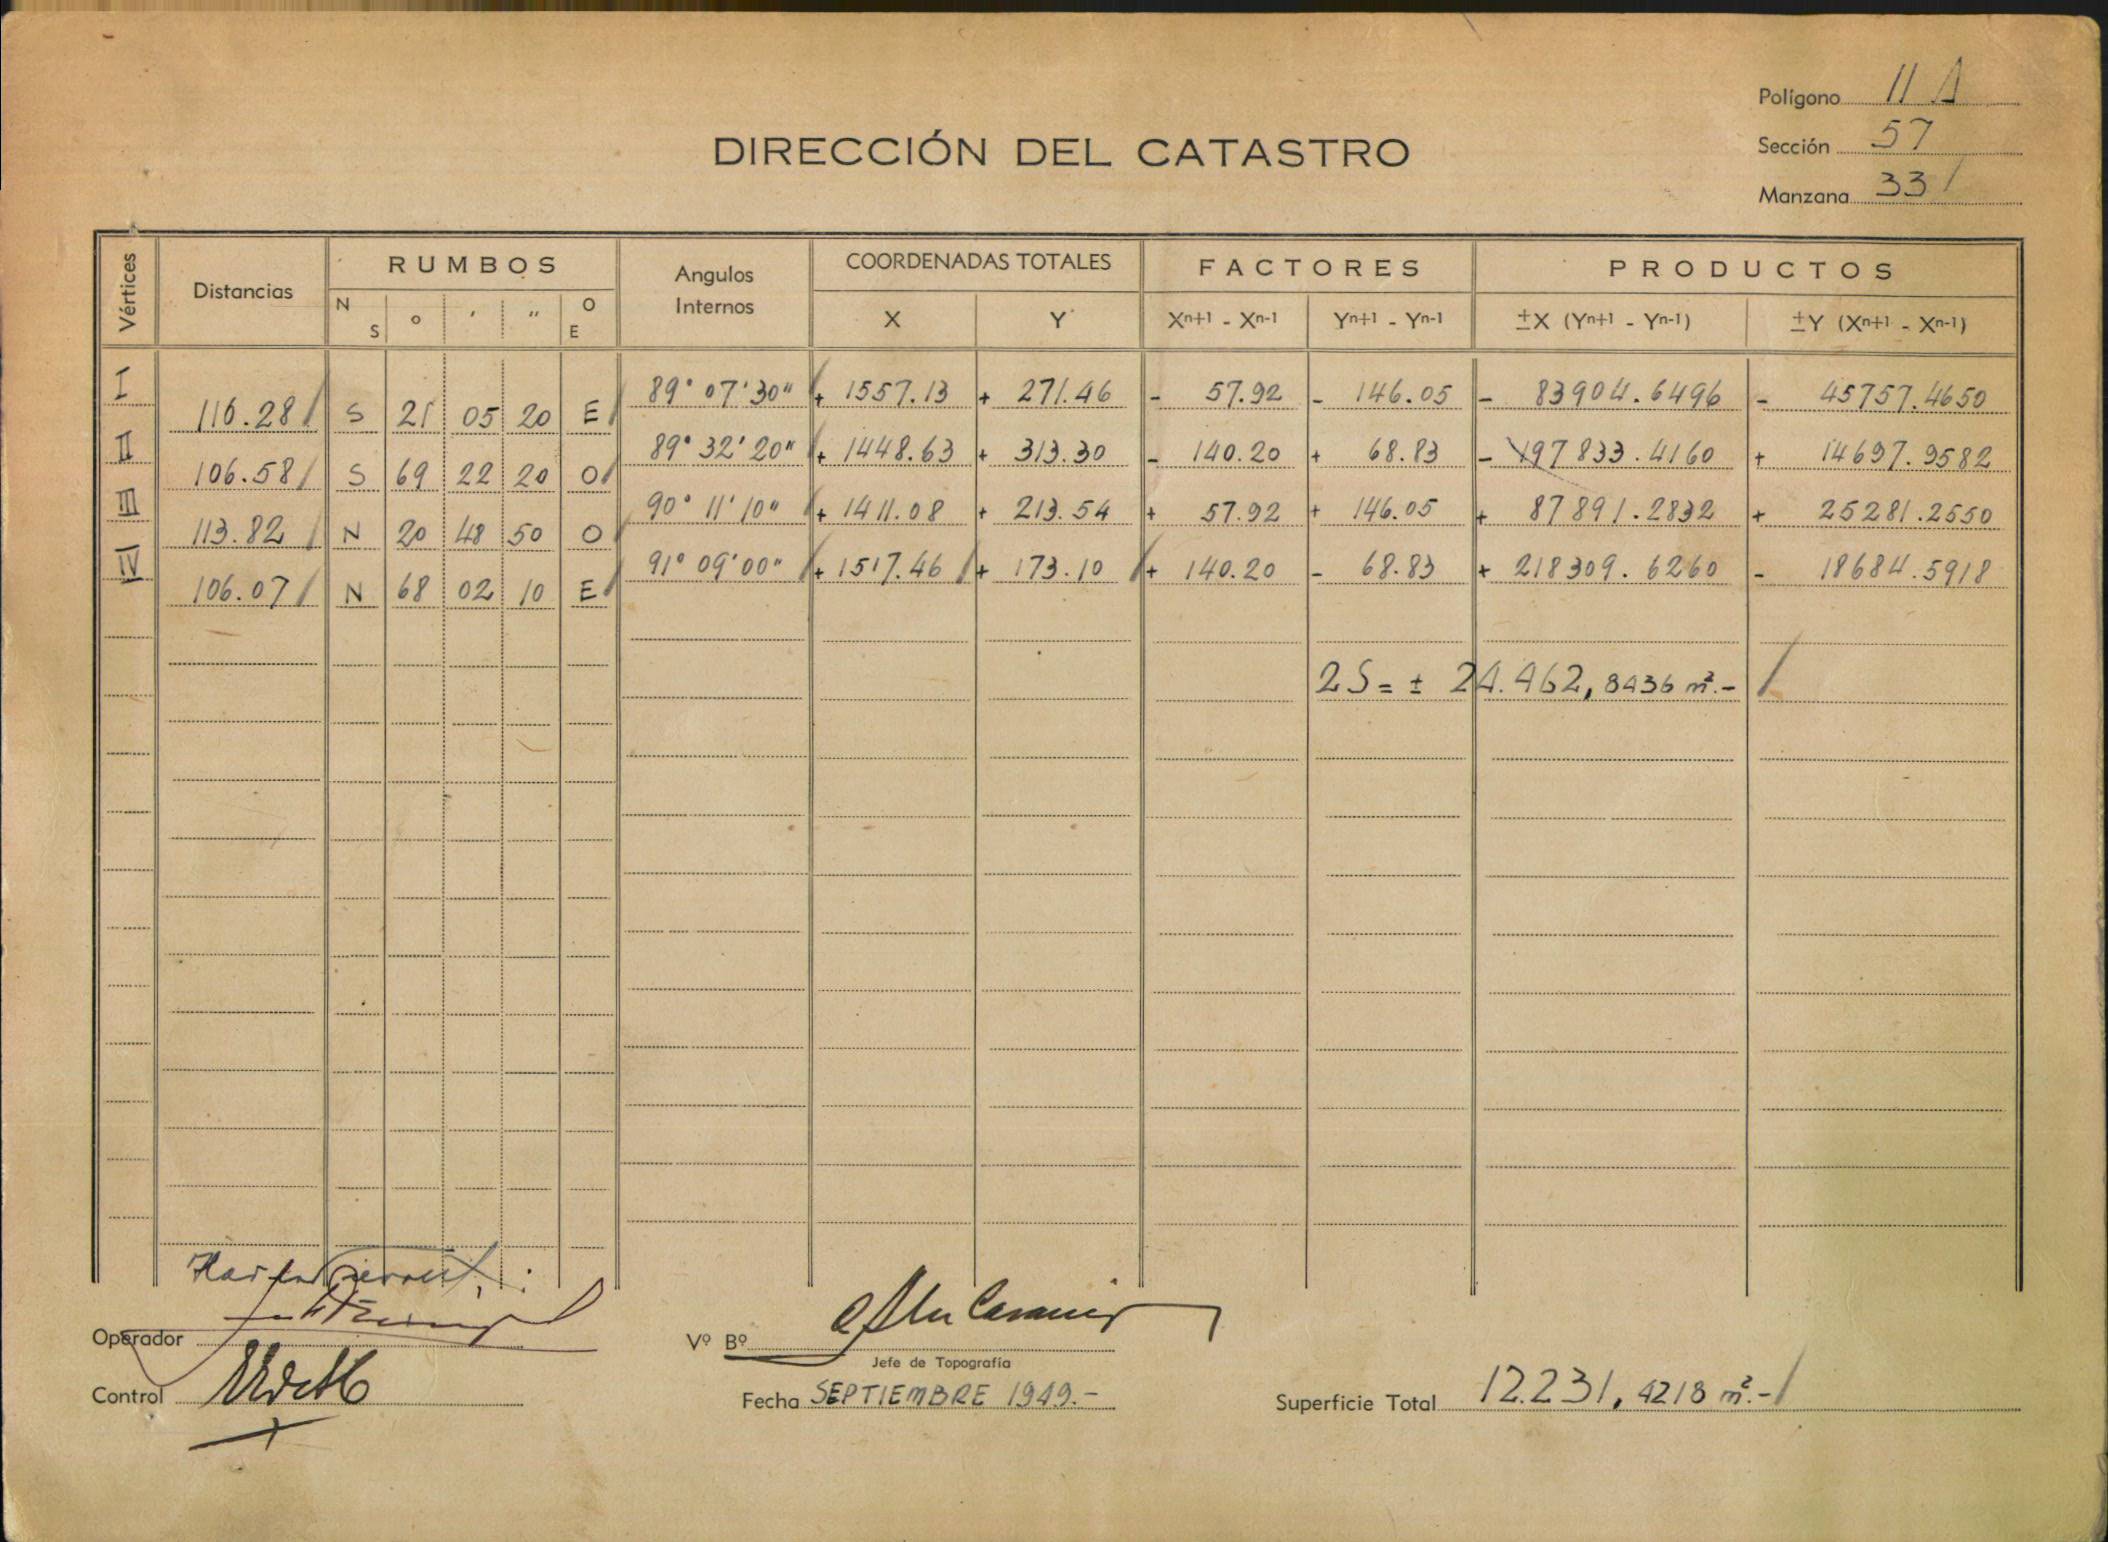 Polígono 11 A
DIRECCIÓN DEL CATASTRO
Sección 57
Manzana 33
Vértices Distancias RUMBOS Angulos Internos COORDENADAS TOTALES FACTORES PRODUCTOS
N S ° ' " O E X Y Xn+1 - Xn-1 Yn+1 - Yn-1 ±X (Yn+1 - Yn-1) ±Y (Xn+1 - Xn-1)
I 89° 07' 30" + 1557.13 + 271.46 - 57.92 - 146.05 - 83904.6496 - 45757.4650
116.28 S 21 05 20 E
II 89° 32' 20" + 1448.63 + 313.30 - 140.20 + 68.83 - 197833.4160 + 14697.9582
106.58 S 69 22 20 O
III 90° 11' 10" + 1411.08 + 213.54 + 57.92 + 146.05 + 87891.2832 + 25281.2550
113.82 N 20 48 50 O
IV 91° 09' 00" + 1517.46 + 173.10 + 140.20 - 68.83 + 218309.6260 - 18684.5918
106.07 N 68 02 10 E
2S = ± 24.462,8436 m².-
Operador
Vº Bº
Jefe de Topografía
Control
Fecha SEPTIEMBRE 1949.-
Superficie Total 12.231,4218 m².-